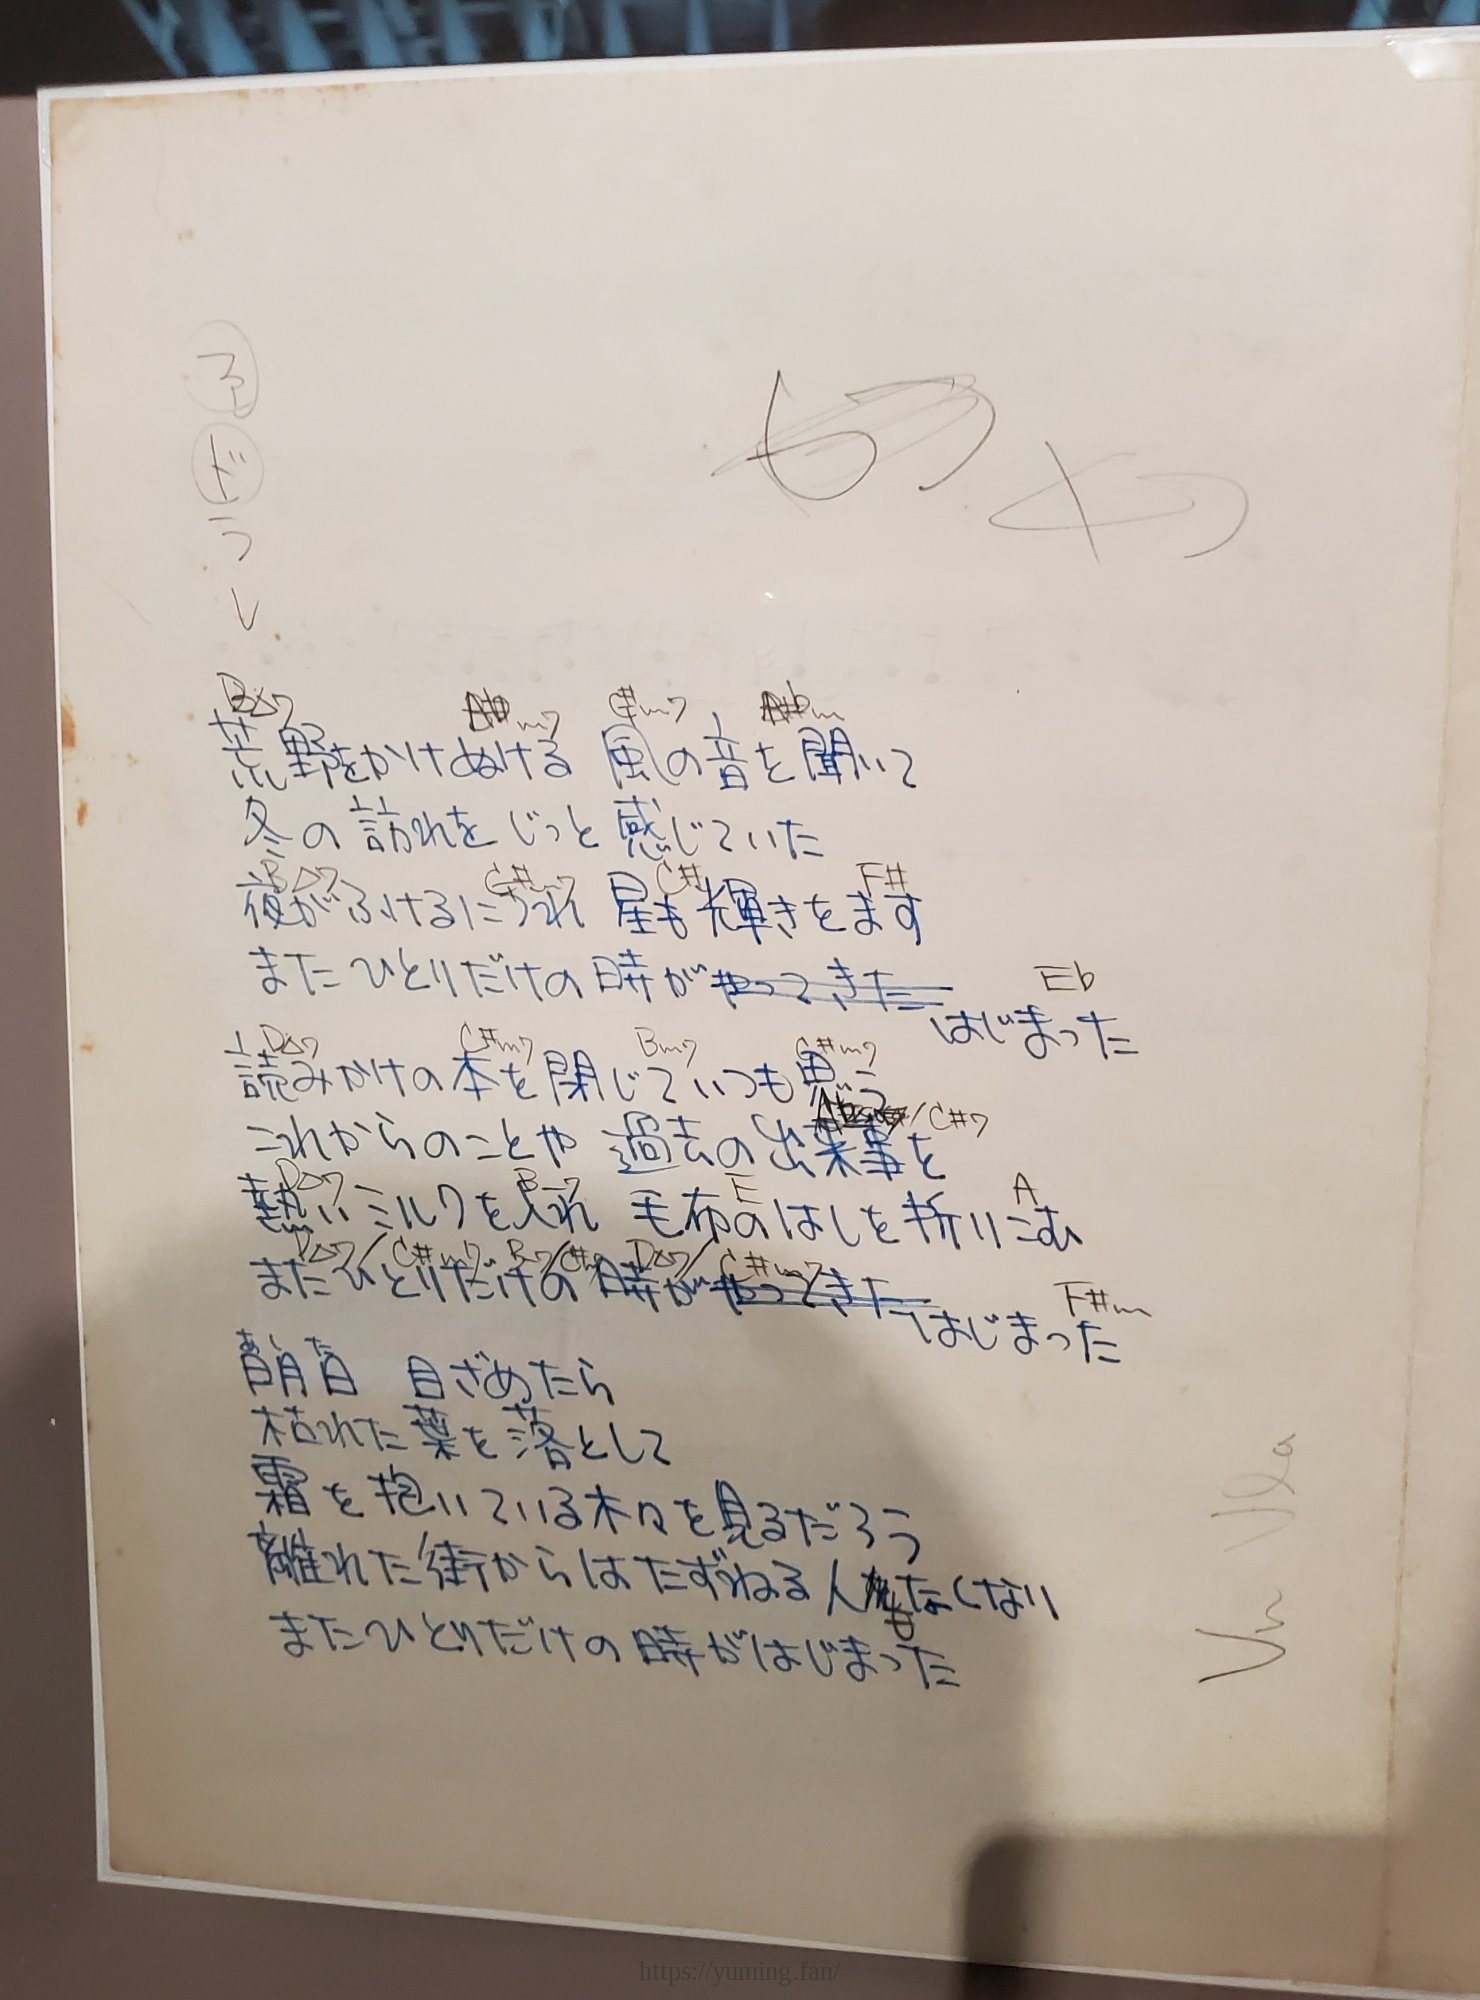 だ
う
し
BΔ7 m7 C#m7 m
荒野をかけぬける 風の音を聞いて
冬の訪れを じっと 感じていた
BΔ7 C#m7 C# F#
夜がふけるにつれ 星も輝きをます
またひとりだけの時が やってきた はじまった
Eb
DΔ7 C#m7 Bm7 C#m7
読みかけの本を閉じていつも思う
/C#7
これからのことや 過去の出来事を
DΔ7 B7 E A
熱いミルクを入れ 毛布のはしを折りこむ
DΔ7/C#m7 B7/C# DΔ7/C#m7 F#m
またひとりだけの時が やってきた はじまった
朝 目ざめたら
枯れた葉を落として
霜を抱いている木々を見るだろう
離れた街からは たずねる人もなくない
またひとりだけの時がはじまった
Vn Vla
https://yuming.fan/